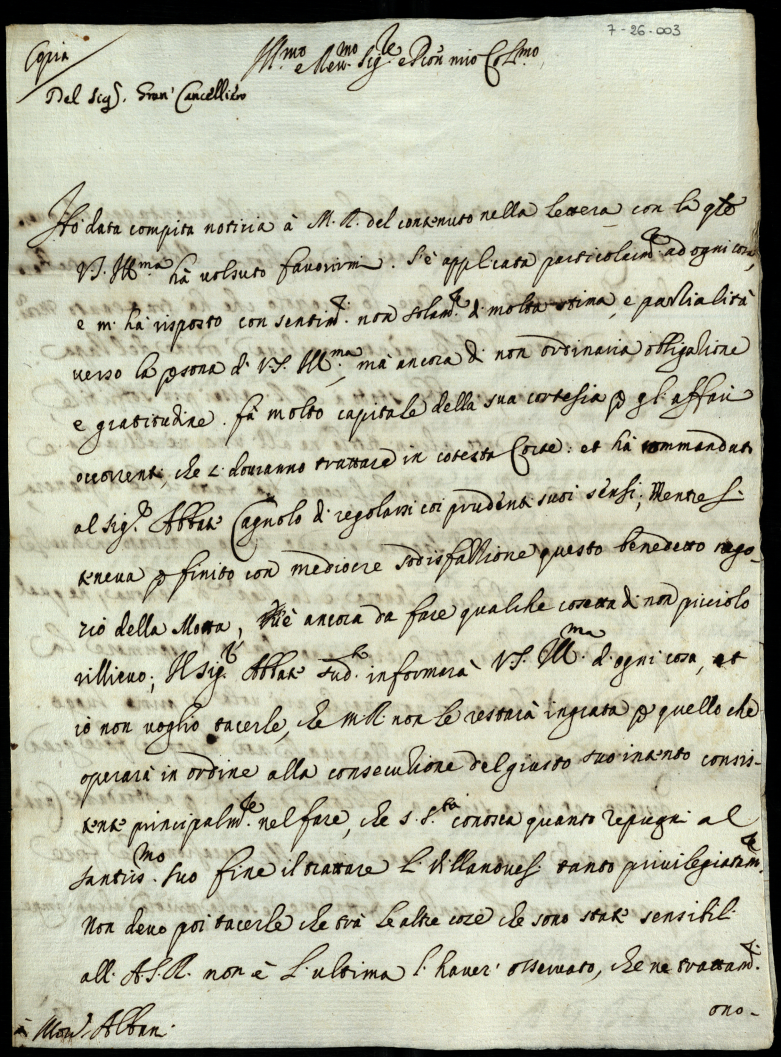 7-26-003
Copia
Ill.mo e Rev.mo Sig.re e Pron mio Col.mo
Del Sig.r Gran Cancelliero
Hò data compita notitia à M. R. del contenuto nella lettera con la qle
V.S. Ill.ma hà volsuto favorirmi. S'è applicata particolarm.te ad ogni cosa,
e m'hà risposto con sentim.ti non solam.te di molta stima, e parlialità
verso la psona di V.S. Ill.ma, mà ancora di non ordinaria obligatione
e gratitudine. fà molto capitale della sua cortesia p gl'affari
occorrenti, che si dovranno trattare in cotesta Corte: et hà commandato
al Sig.r Abbate Cagnolo di regolarsi coi prudenti suoi sensi; Mentre si
teneva p finito con mediocre sodisfattione questo benedetto nego-
tio della Motta, v'è ancora da fare qualche cosetta di non picciolo
rillievo; Il Sig.r Abbate sud.o informerà V.S. Ill.ma d'ogni cosa, et
io non voglio tacerle, che M.R. non le restarà ingrata p quello che
operarà in ordine alla consecutione del giusto suo intento consis-
tente principalm.te nel fare, che S. S.tà conosca quanto repugni al
santiss.mo suo fine il trattare li Villanovesi tanto privilegiatam.te
Non devo poi tacerle che trà le altre cose che sono state sensibili
all'A.S.R. non è l'ultima l'haver osservato, che ne trattam.ti
ono-
à Mons.r Albani